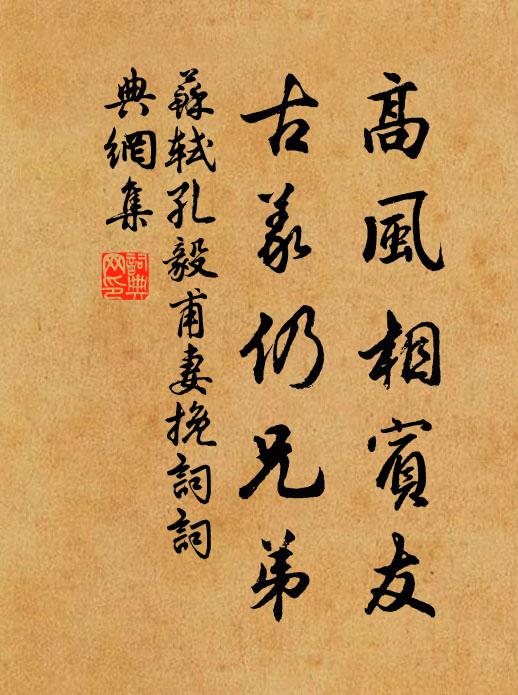 高風相賓友
古義仍兄弟
蘇軾孔毅甫妻挽詞詞
典網集
詞典
网印